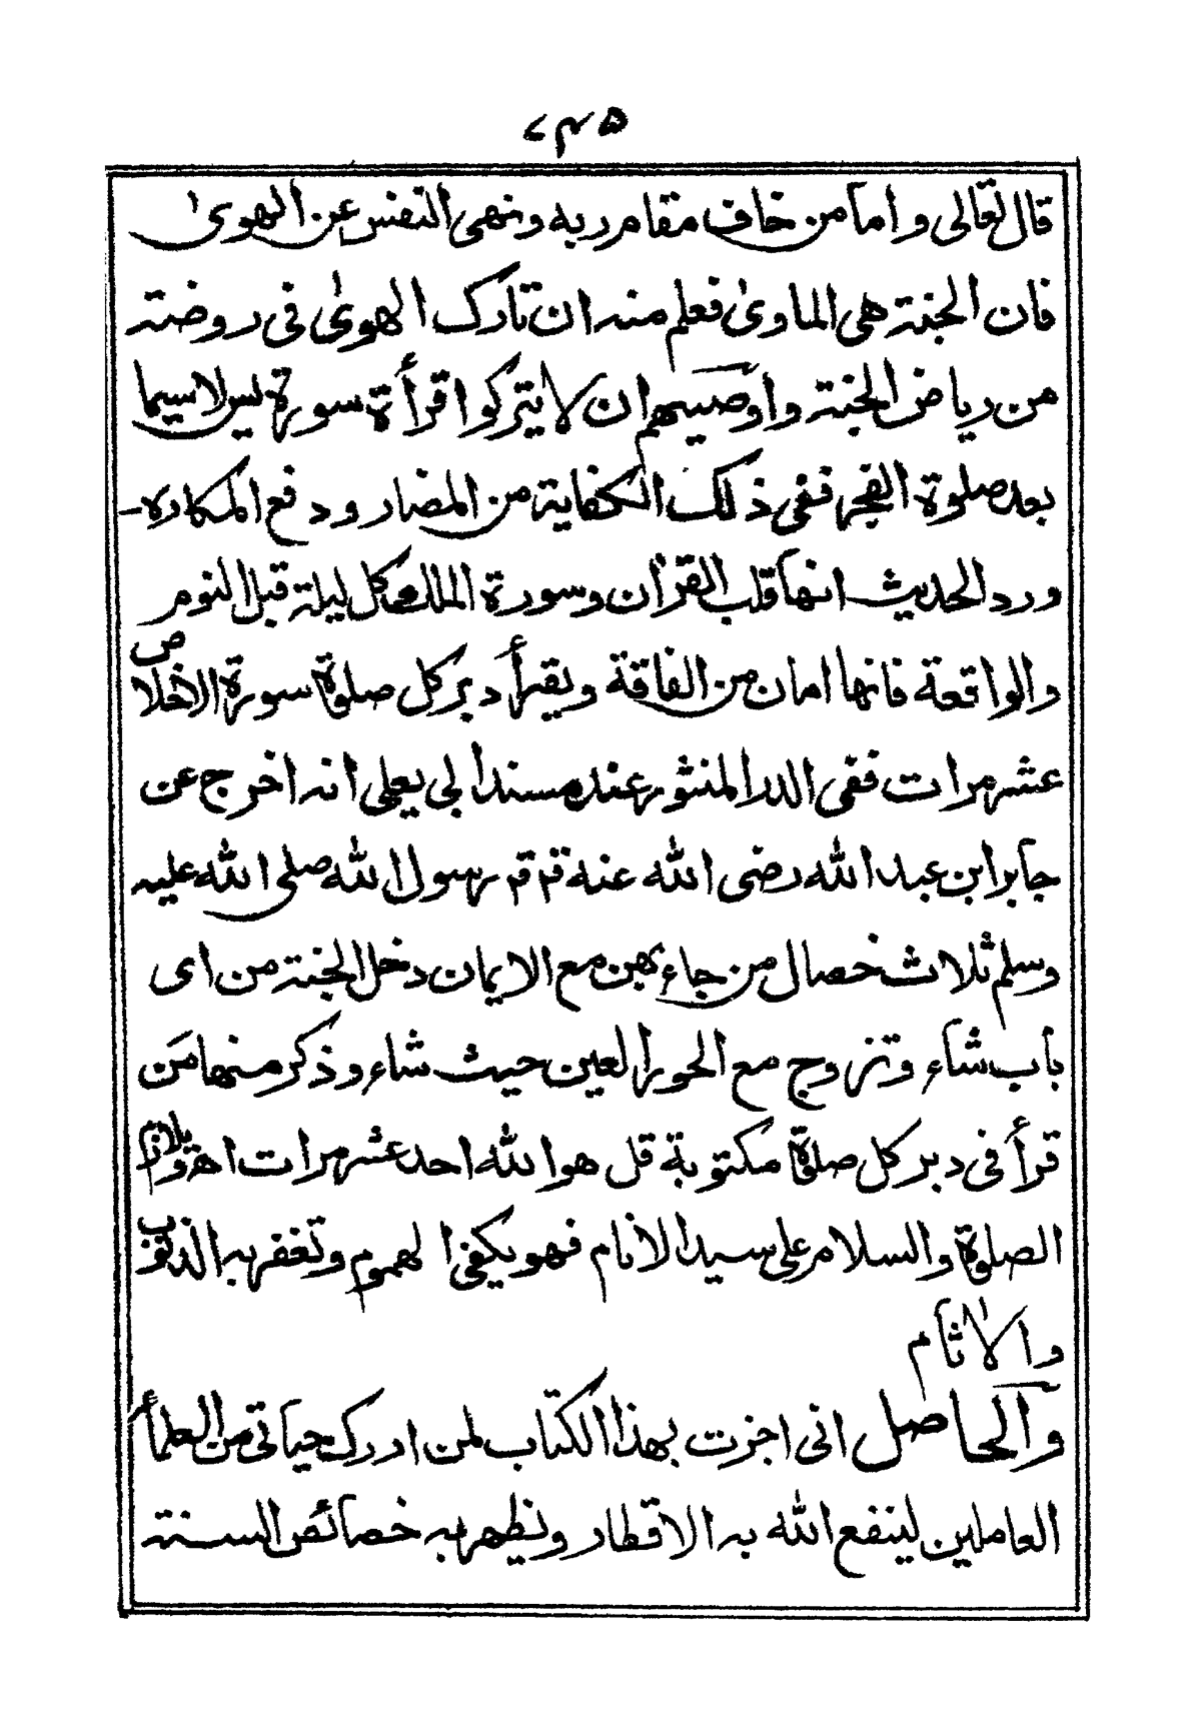 قال تعالى واما من خاف مقام ربه ونهى النفس عن الهوىٰ
فان الجنة هى الماوىٰ فعلم منه ان تارك الهوىٰ فى روضة
من رياض الجنة واوصيهم ان لا يتركوا قرأة سورة يس لا سيما
بعد صلوة الفجر ففى ذلك الكفاية من المضار ودفع المكاره -
ورد الحديث انها قلب القرأن وسورة الملك كل ليلة قبل النوم
والواقعة فانها امان من الفاقة ويقرأ دبر كل صلوة سورة الاخلاص
عشر مرات ففى الدر المنثور عنده مسندا لبى يعلى انه اخرج عن
جابر ابن عبد الله رضى الله عنه قۃ قۃ رسول الله صلى الله عليه
وسلم ثلاث خصال من جاء بهن مع الايمان دخل الجنة من اى
باب شاء وتزوج مع الحور العين حيث شاء وذكر منها من
قرأ فى دبر كل صلوة مكتوبة قل هو الله احد عشر مرات اه
الصلوة والسلام على سيد الانام فهو يكفى الهموم وتغفر به الذنوب
والاٰثام
والحاصل انى اجزت بهذا الكتاب لمن ادرك حياتى من العلمأ
العاملين لينفع الله به الاقطار ونظهر به خصائص السنة